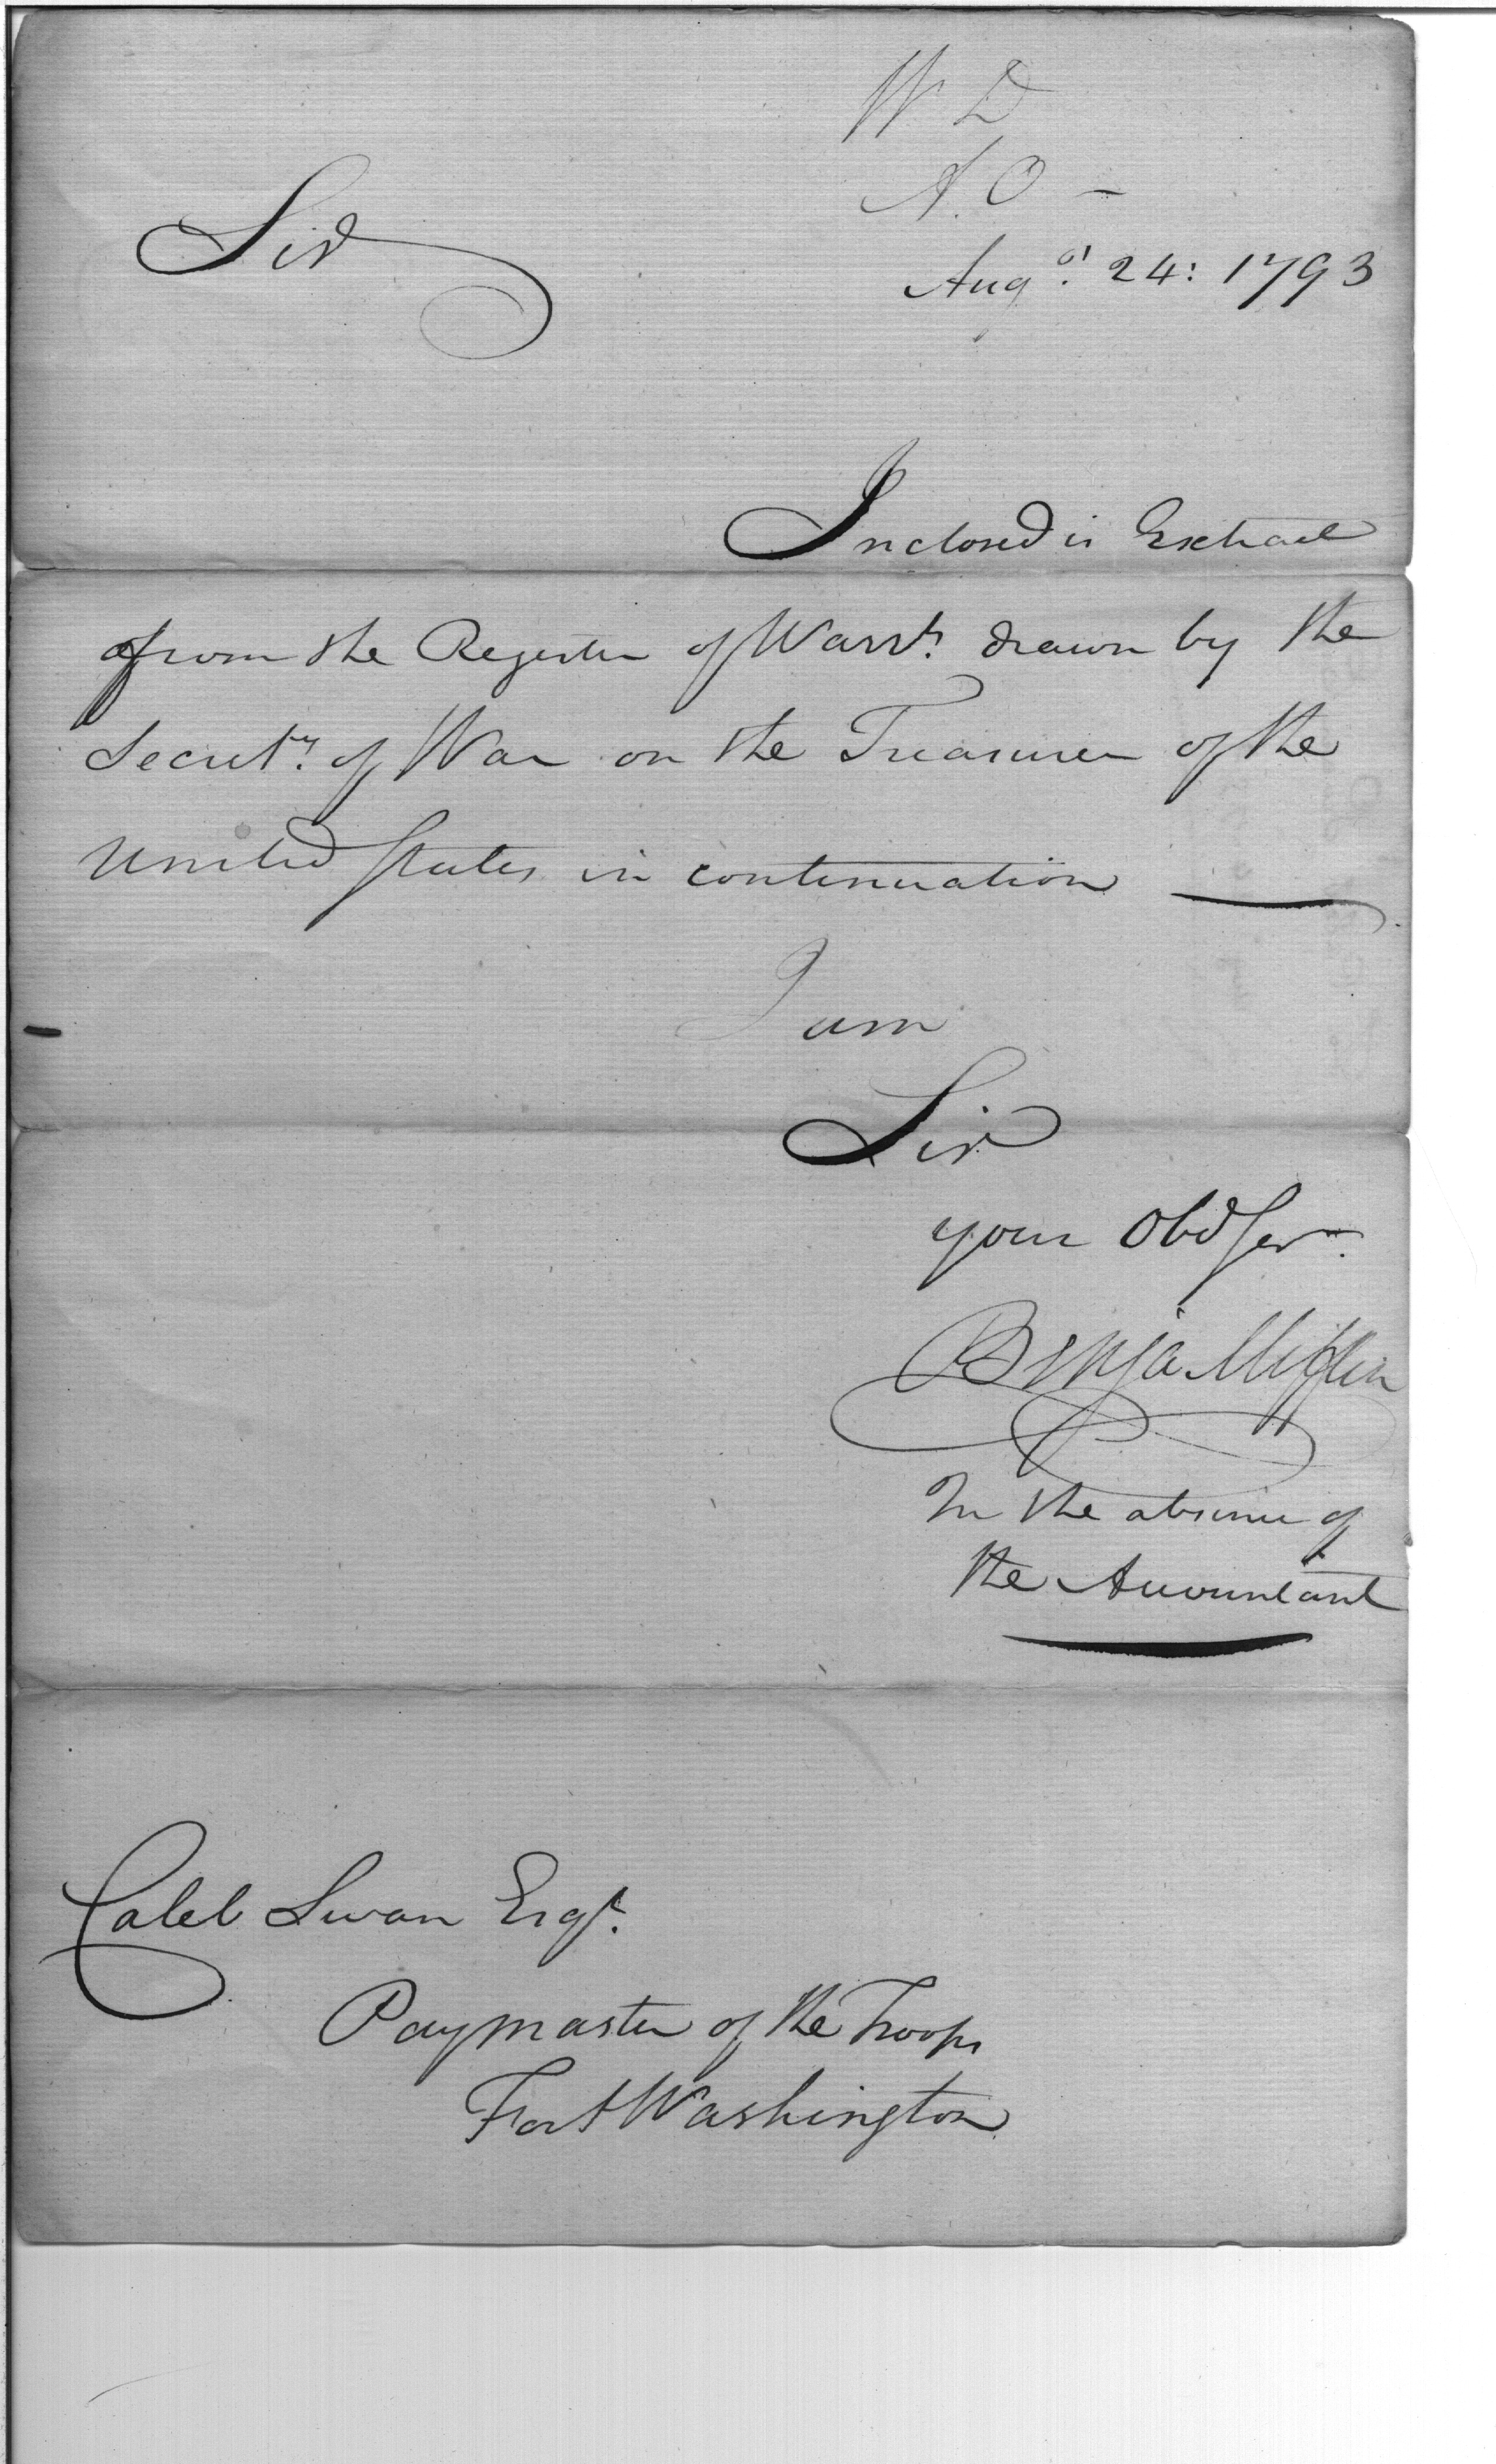 W D
A. O –
Sir
Augst. 24: 1793
Inclosed is Extract
from the Register of Warrts. drawn by the
Secrety. of War on the Treasurer of the
United States in continuation
I am
Sir
your Obd Ser
Benja Mifflin
In the absence of
the Accountant
Caleb Swan Esqr.
Paymaster of the Troops
Fort Washington